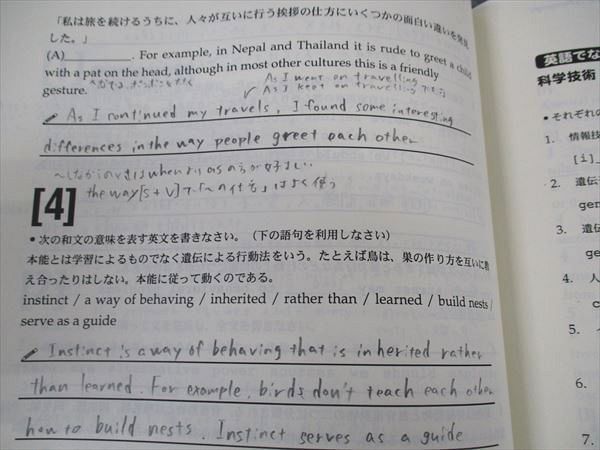 「私は旅を続けるうちに、人々が互いに行う挨拶の仕方にいくつかの面白い違いを発見
した。」
(A)____________. For example, in Nepal and Thailand it is rude to greet a child
with a pat on the head, although in most other cultures this is a friendly
gesture.
As I went on travelling
✓ As I kept on travelling でも可
As I continued my travels, I found some interesting
differences in the way people greet each other
〜しながらのときはwhenよりasのほうが好ましい
the way[S+V]で「〜の仕方」はよく使う
[4]
• 次の和文の意味を表す英文を書きなさい。(下の語句を利用しなさい)
本能とは学習によるものでなく遺伝による行動法をいう。たとえば鳥は、巣の作り方を互いに教
え合ったりはしない。本能に従って動くのである。
instinct / a way of behaving / inherited / rather than / learned / build nests /
serve as a guide
Instinct is a way of behaving that is inherited rather
than learned. For example, birds don't teach each other
how to build nests. Instinct serves as a guide
英語でな
科学技術
• それぞれの
1. 情報技
[i]_
2. 遺伝子
gen
3. 遺伝
ge
4. 人
c
5.
6.
7.